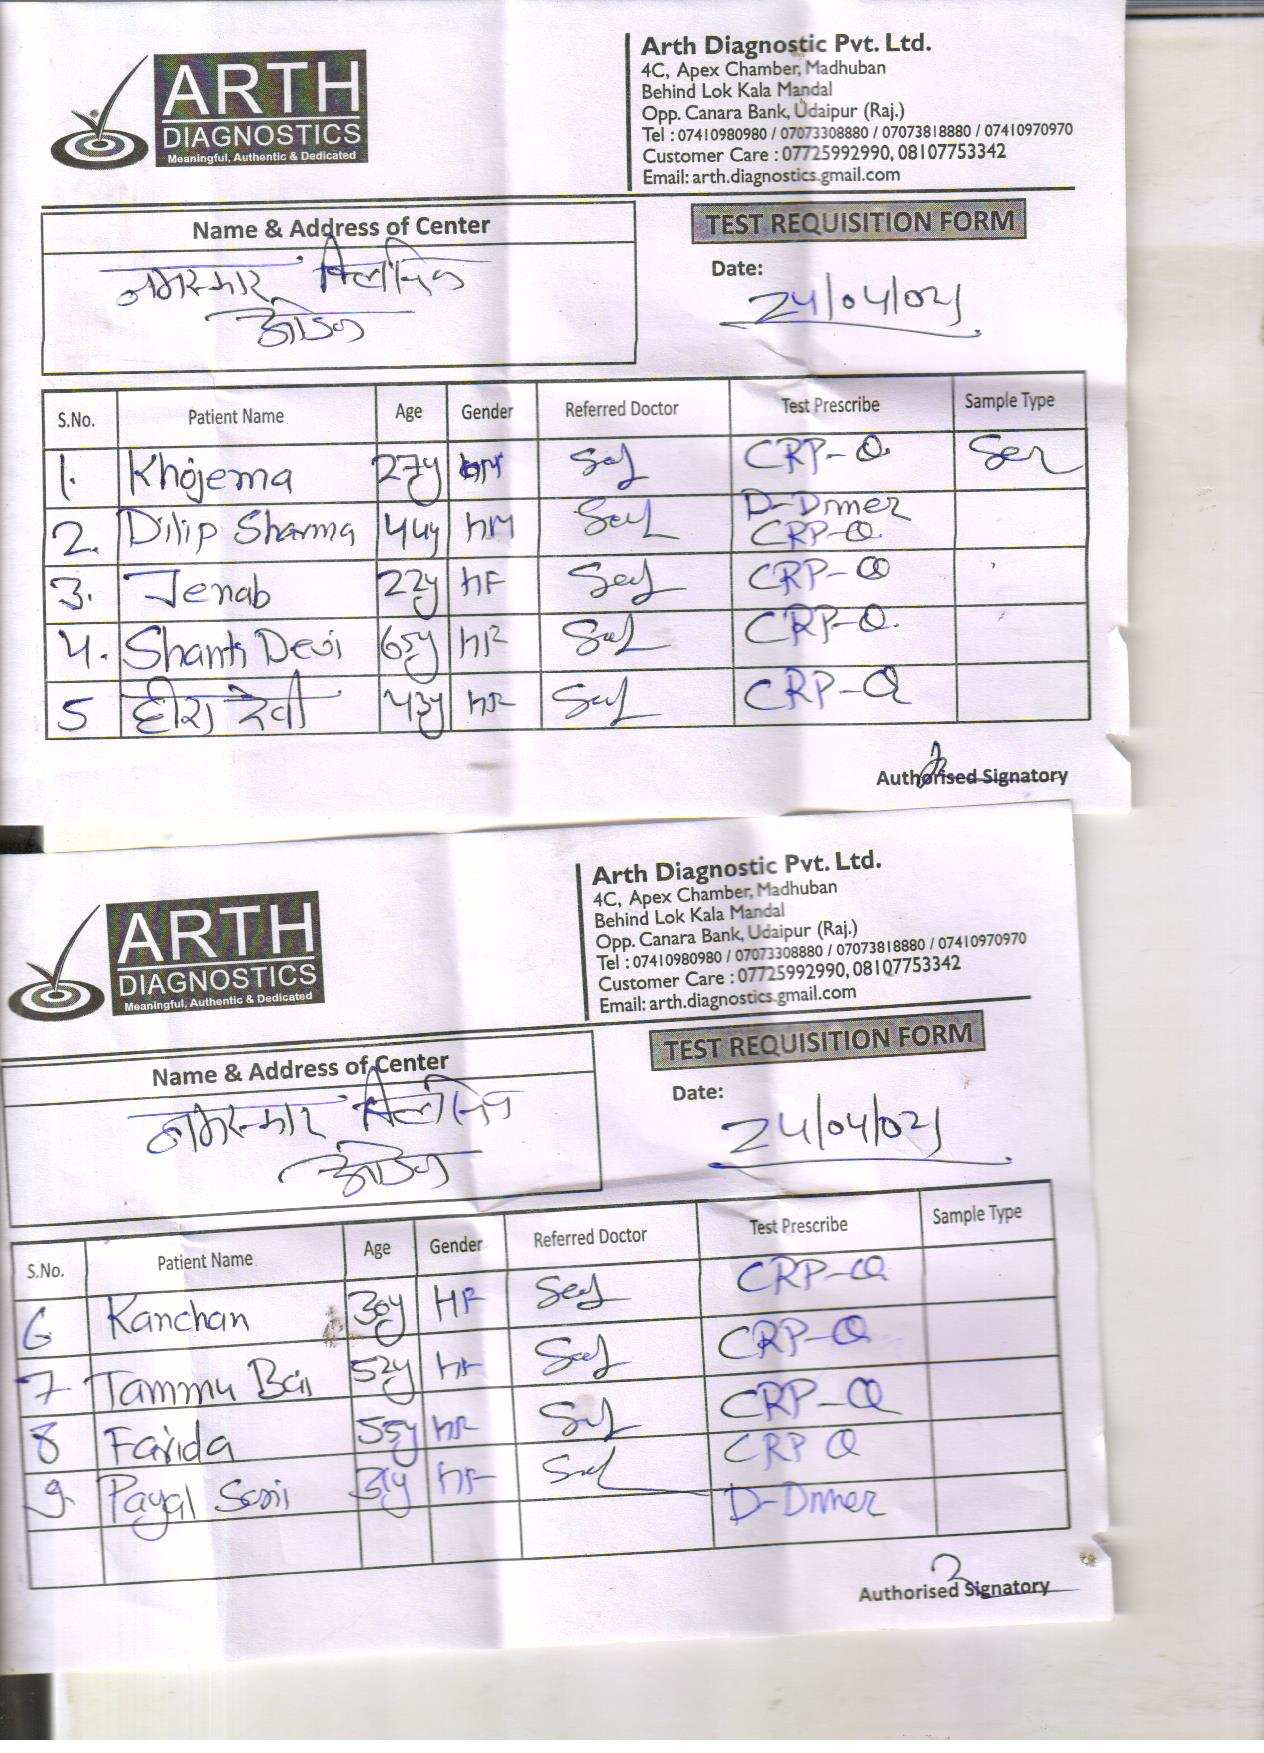 ARTH
DIAGNOSTICS
Meaningful, Authentic & Dedicated
Arth Diagnostic Pvt. Ltd.
4C, Apex Chamber, Madhuban
Behind Lok Kala Mandal
Opp. Canara Bank, Udaipur (Raj.)
Tel : 07410980980 / 07073308880 / 07073818880 / 07410970970
Customer Care : 07725992990, 08107753342
Email: arth.diagnostics.gmail.com
Name & Address of Center
TEST REQUISITION FORM
Date:
24/04/021
S.No. Patient Name Age Gender Referred Doctor Test Prescribe Sample Type
1. Khojema 27y CRP-Q Ser
2. Dilip Sharma 44y hM D-Dimer
CRP-Q
3. Jenab 22y hF CRP-Q
4. Shanti Devi 65y hF CRP-Q
5 हीरा देवी 43y hF CRP-Q
Authorised Signatory
ARTH
DIAGNOSTICS
Meaningful, Authentic & Dedicated
Arth Diagnostic Pvt. Ltd.
4C, Apex Chamber, Madhuban
Behind Lok Kala Mandal
Opp. Canara Bank, Udaipur (Raj.)
Tel : 07410980980 / 07073308880 / 07073818880 / 07410970970
Customer Care : 07725992990, 08107753342
Email: arth.diagnostics.gmail.com
Name & Address of Center
TEST REQUISITION FORM
Date:
24/04/021
S.No. Patient Name Age Gender Referred Doctor Test Prescribe Sample Type
6 Kanchan 30y HF CRP-Q
7 Tammu Bai 52y hF CRP-Q
8 Farida 55y hF CRP-Q
9. Payal Soni 31y hF CRP Q
D-Dimer
Authorised Signatory